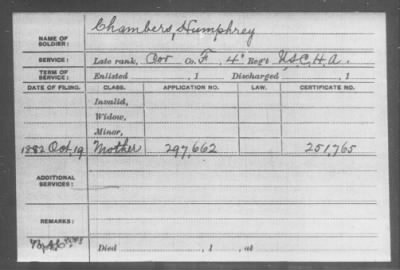 NAME OF SOLDIER: Chambers, Humphrey
SERVICE: Late rank, Cor Co. F, 4" Reg't U.S.C.H.A.
TERM OF SERVICE: Enlisted , 1 Discharged , 1
DATE OF FILING. CLASS. APPLICATION NO. LAW. CERTIFICATE NO.
Invalid,
Widow,
Minor,
1882 Oct, 19 Mother 297,662 251,765
ADDITIONAL SERVICES:
REMARKS:
Died , 1 , at